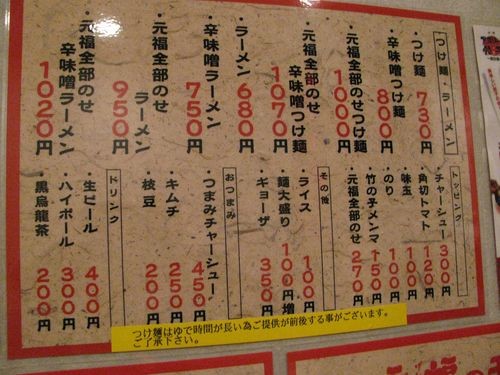 つけ麺・ラーメン
・つけ麺 730円
・辛味噌つけ麺 800円
・元福全部のせつけ麺 1000円
・元福全部のせ
辛味噌つけ麺 1070円
・ラーメン 680円
・辛味噌ラーメン 750円
・元福全部のせ
ラーメン 950円
・元福全部のせ
辛味噌ラーメン 1020円
トッピング
・チャーシュー 300円
・角切トマト 120円
・味玉 100円
・のり 100円
・竹の子メンマ 150円
・元福全部のせ 270円
その他
・ライス 100円
・麺大盛り 100円増
・ギョーザ 350円
おつまみ
・つまみチャーシュー 450円
・キムチ 250円
・枝豆 200円
ドリンク
・生ビール 400円
・ハイボール 300円
・黒烏龍茶 200円
つけ麺はゆで時間が長い為ご提供が前後する事がございます。
ご了承下さい。